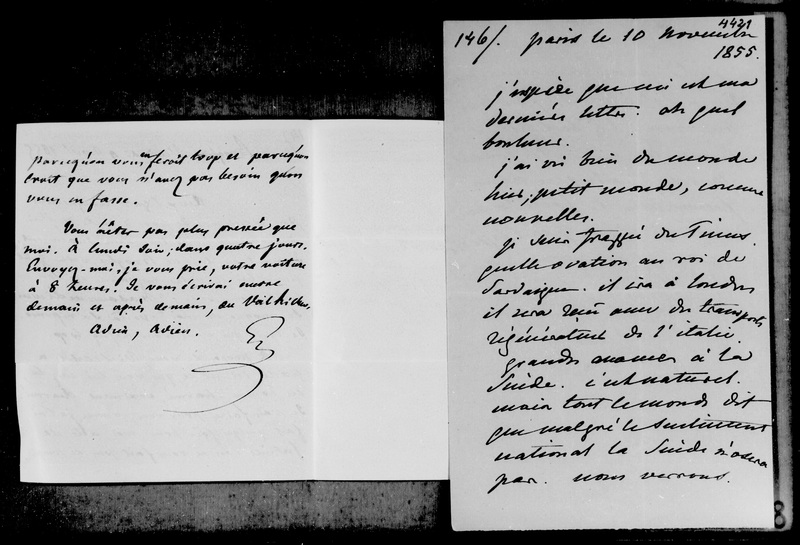 parcequ'on vous en feroit trop et parcequ'on
croit que vous n'avez pas besoin qu'on
vous en fasse.
Vous n'êtes pas plus pressée que
moi. À lundi soir, dans quatre jours.
Envoyez-moi, je vous prie, votre voiture
à 8 heures. Je vous écrirai encore
demain et après demain, au Val Richer.
Adieu, Adieu.
G
4421
146/. paris le 10 novembre
1855.
j'espère que ceci est ma
dernière lettre. oh quel
bonheur.
j'ai vu bien du monde
hier, petit monde, comme
nouvelles.
je suis frappée du Times.
quelle ovation au roi de
Sardaigne. il ira à londres
il sera reçu avec des transports
régénérateur de l'italie.
grandes avances à la
Suède. c'est naturel.
mais tout le monde dit
que malgré le sentiment
national la Suède n'osera
pas. nous verrons.
8